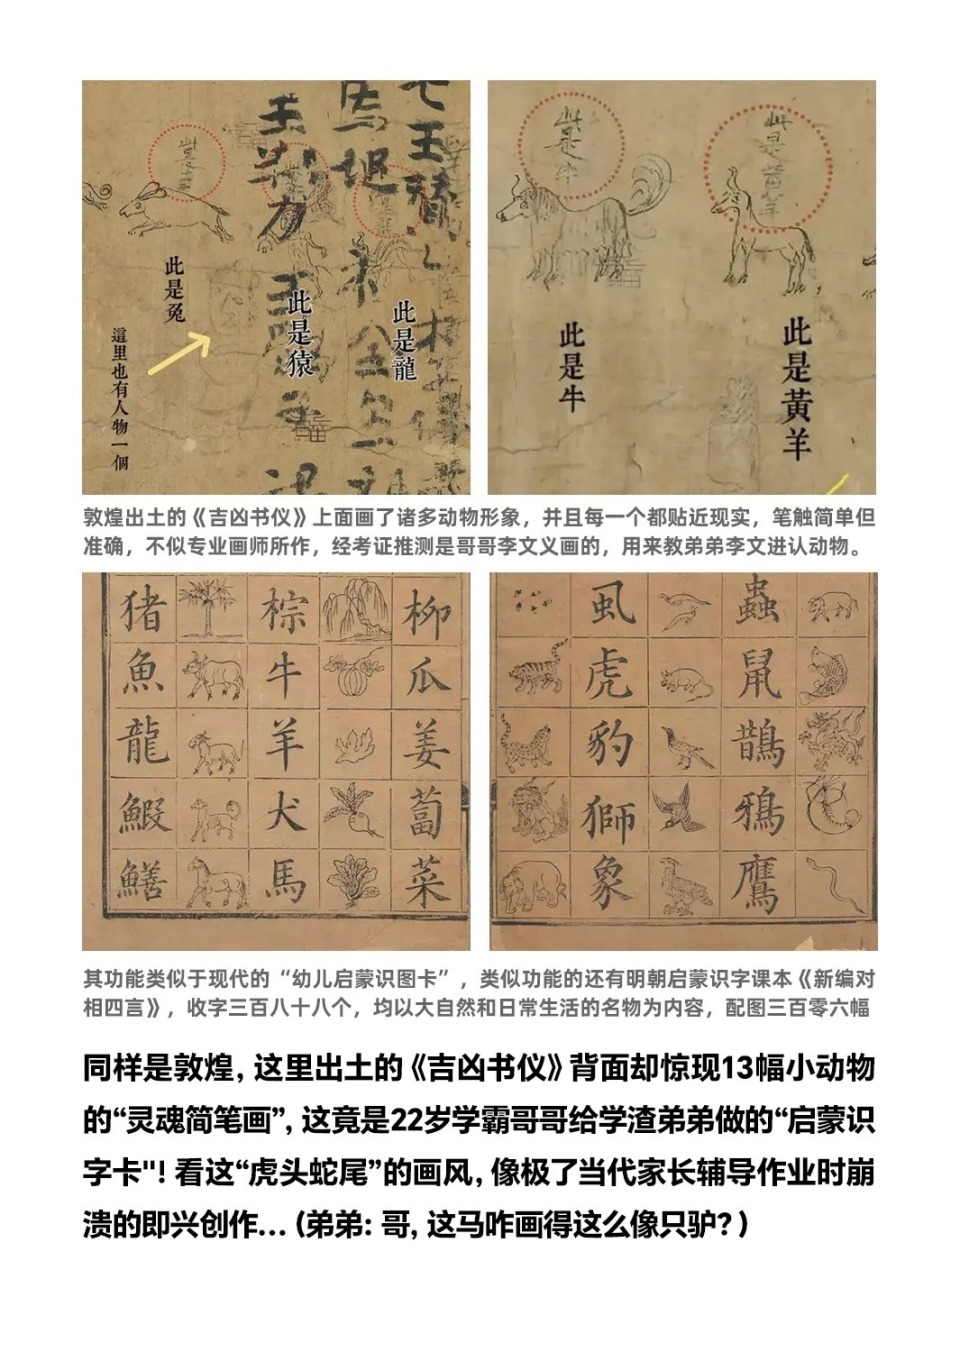 此是兔
這里也有人物一個
此是猿
此是龍
此是牛
此是牛
此是黃羊
此是黃羊
敦煌出土的《吉凶书仪》上面画了诸多动物形象，并且每一个都贴近现实，笔触简单但
准确，不似专业画师所作，经考证推测是哥哥李文义画的，用来教弟弟李文进认动物。
猪 棕 柳
魚 牛 瓜
龍 羊 姜
鰕 犬 蔔
鱔 馬 菜
虱 蟲
虎 鼠
豹 鵲
獅 鴉
象 鷹
其功能类似于现代的“幼儿启蒙识图卡”，类似功能的还有明朝启蒙识字课本《新编对
相四言》，收字三百八十八个，均以大自然和日常生活的名物为内容，配图三百零六幅
同样是敦煌，这里出土的《吉凶书仪》背面却惊现13幅小动物
的“灵魂简笔画”，这竟是22岁学霸哥哥给学渣弟弟做的“启蒙识
字卡"！看这“虎头蛇尾”的画风，像极了当代家长辅导作业时崩
溃的即兴创作…（弟弟：哥，这马咋画得这么像只驴？）